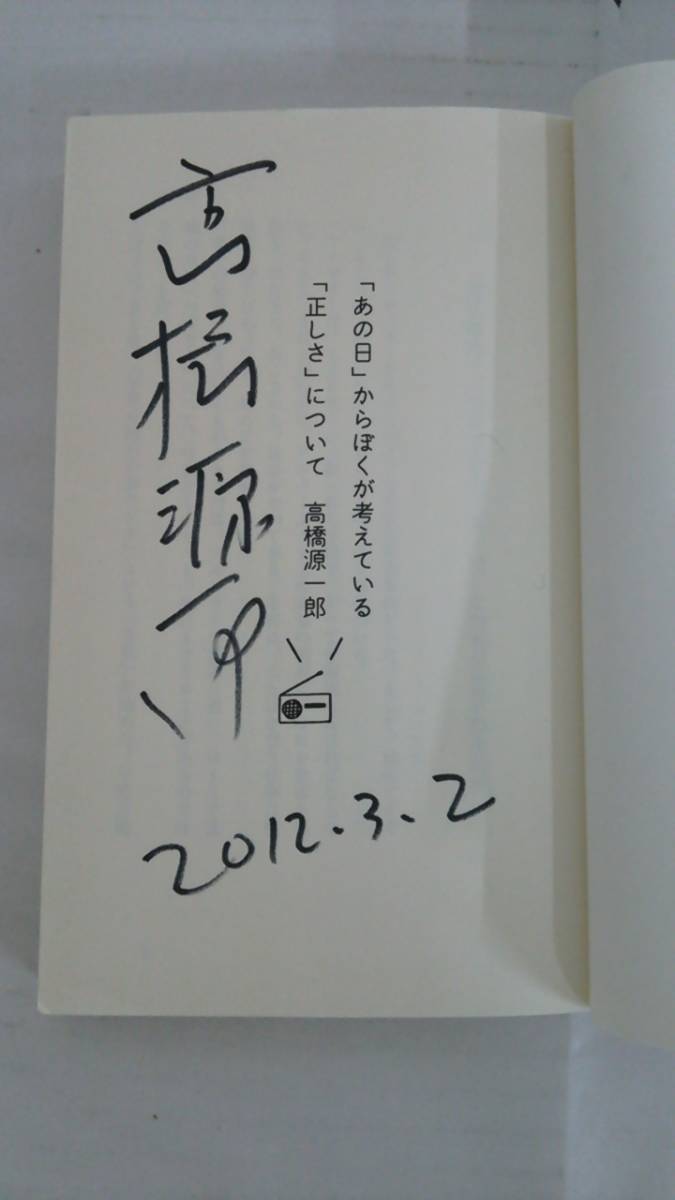 「あの日」からぼくが考えている
「正しさ」について　高橋源一郎
高橋源一郎
2012.3.2